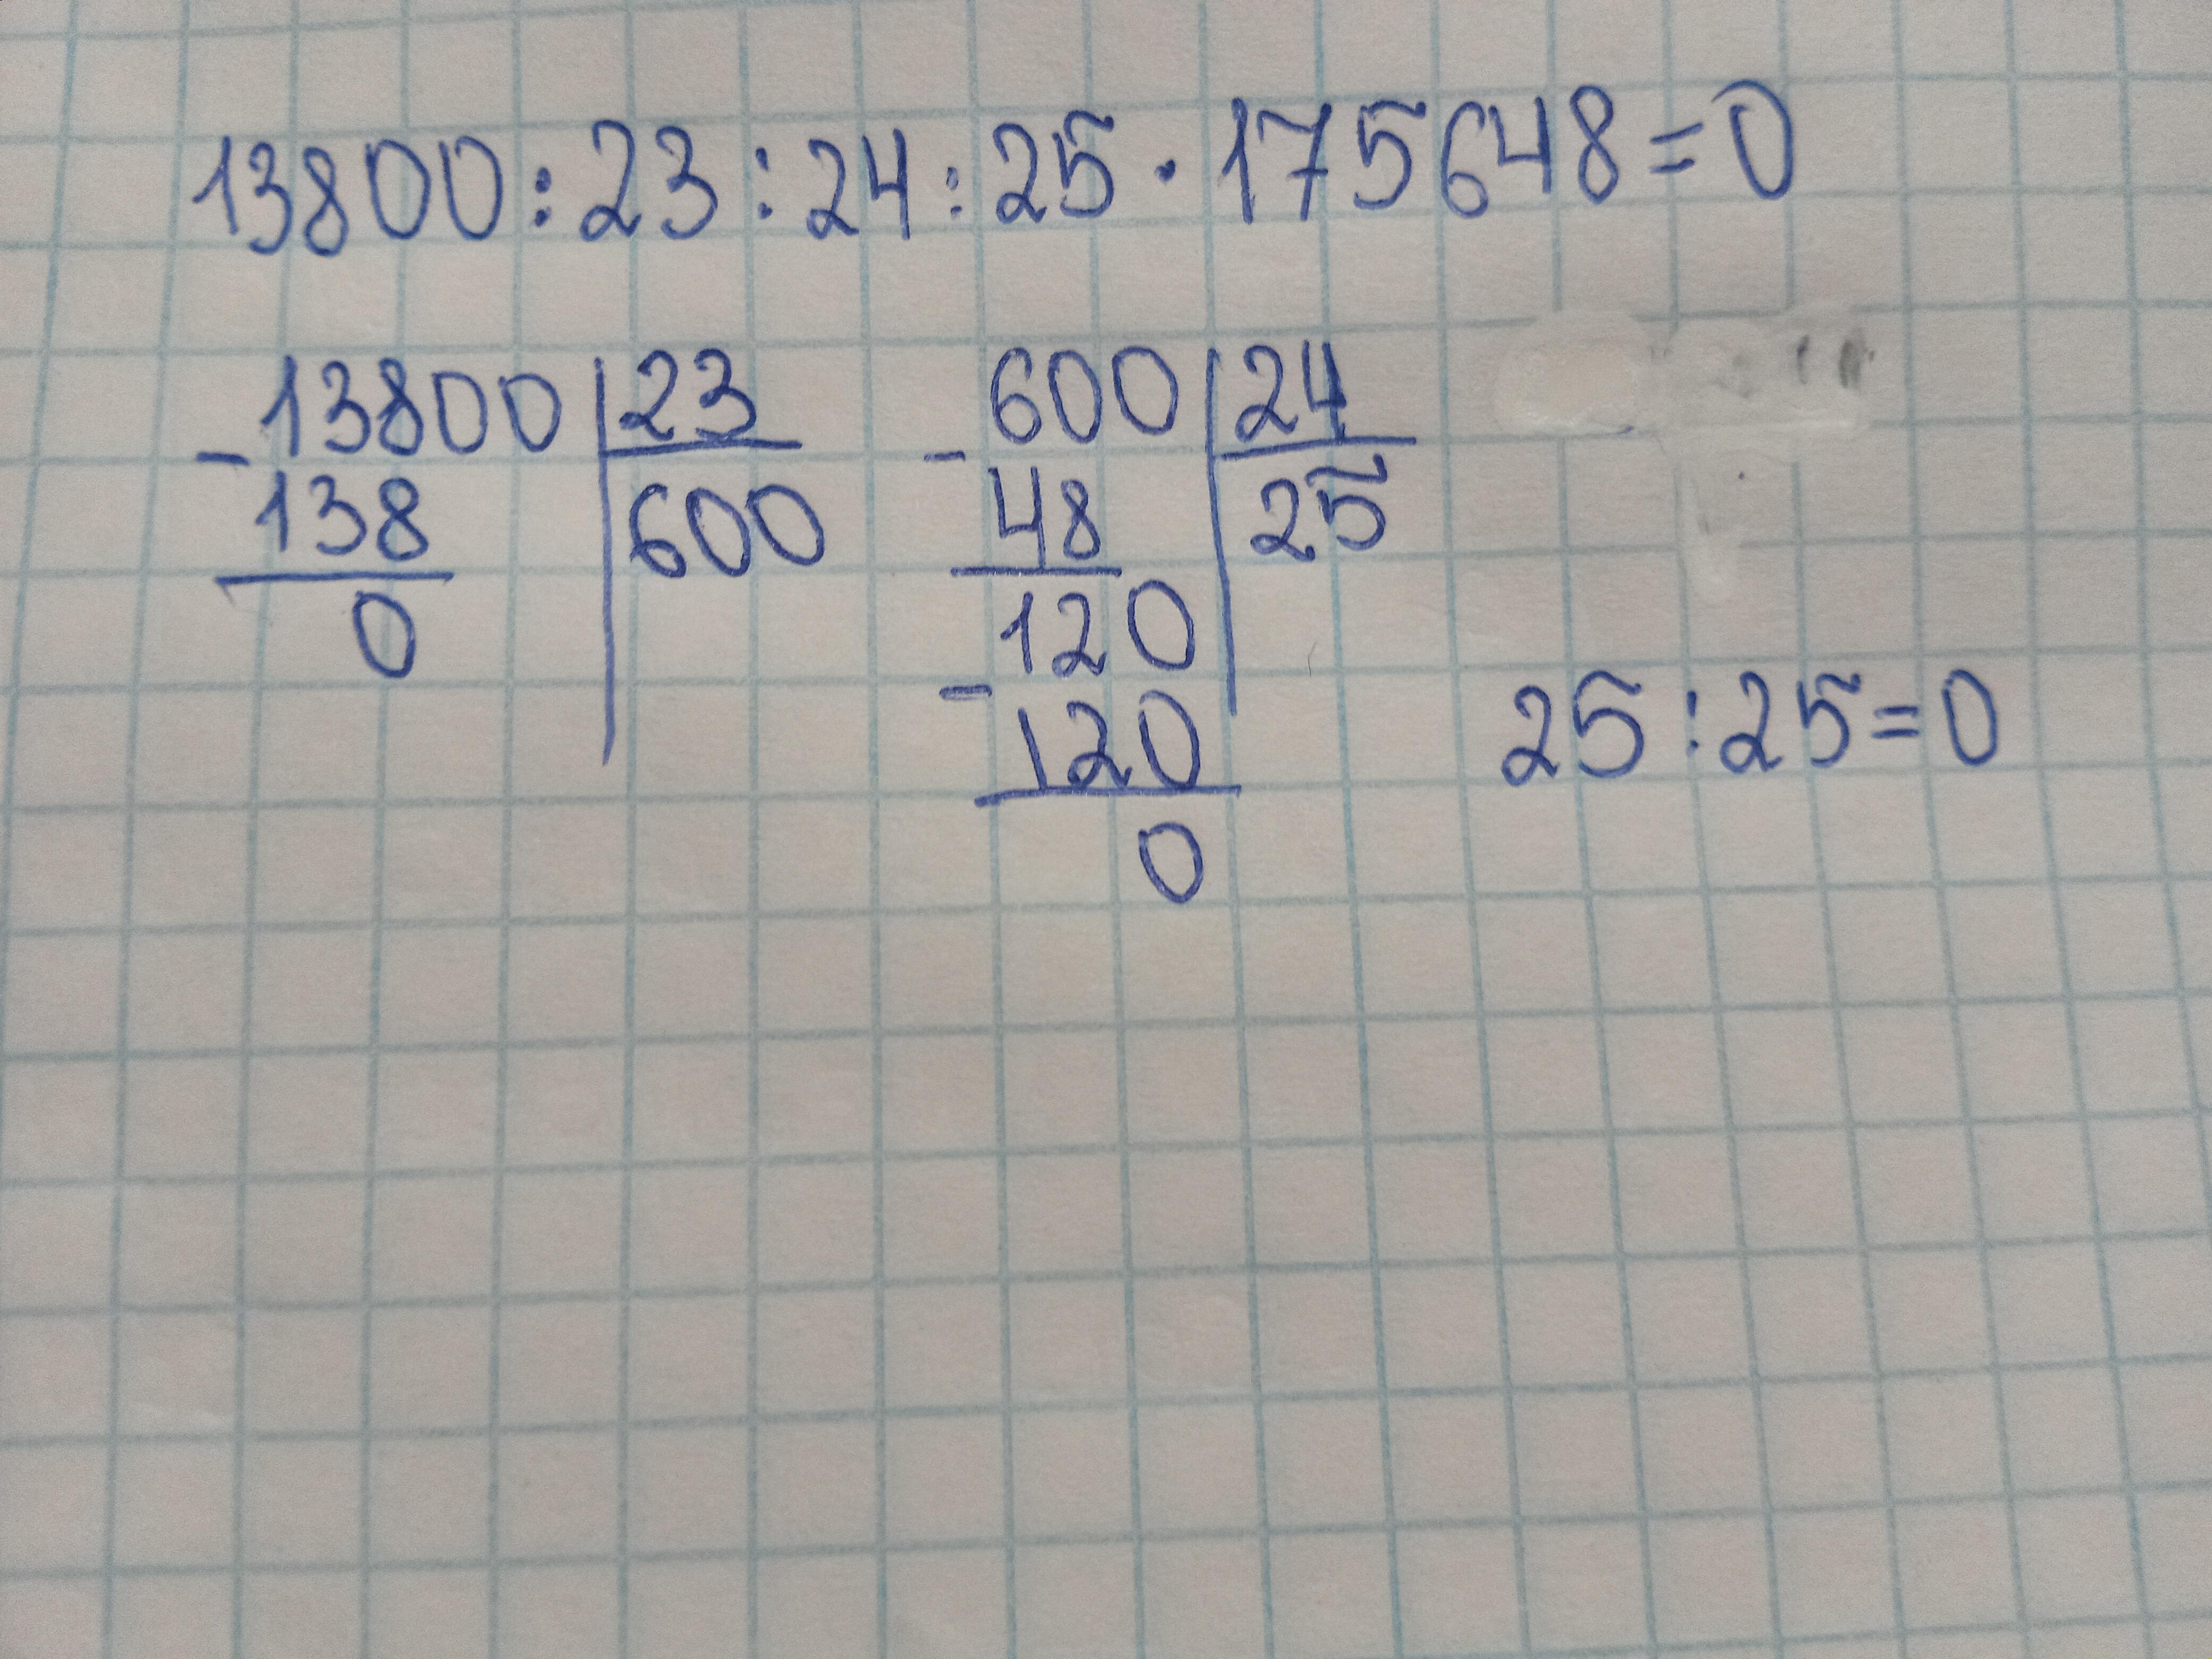 13800:23:24:25·175648=0
-13800|23
138 600
0
-600|24
48 25
120
-120
0
25:25=0